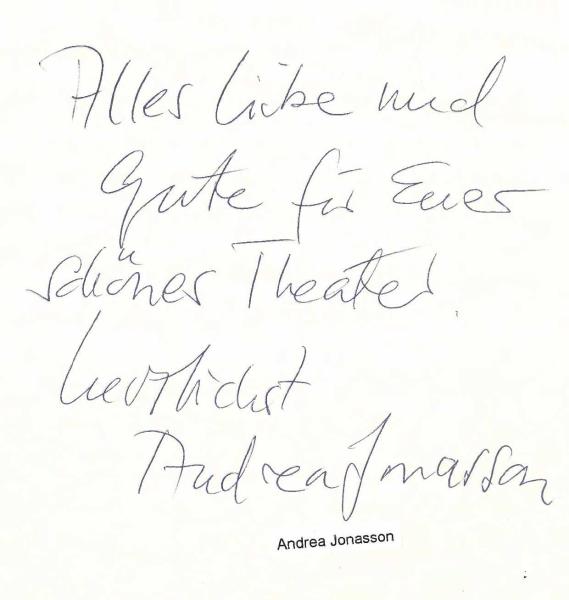 Alles Liebe und
Gute für Euer
schönes Theater.
herzlichst
Andrea Jonasson
Andrea Jonasson